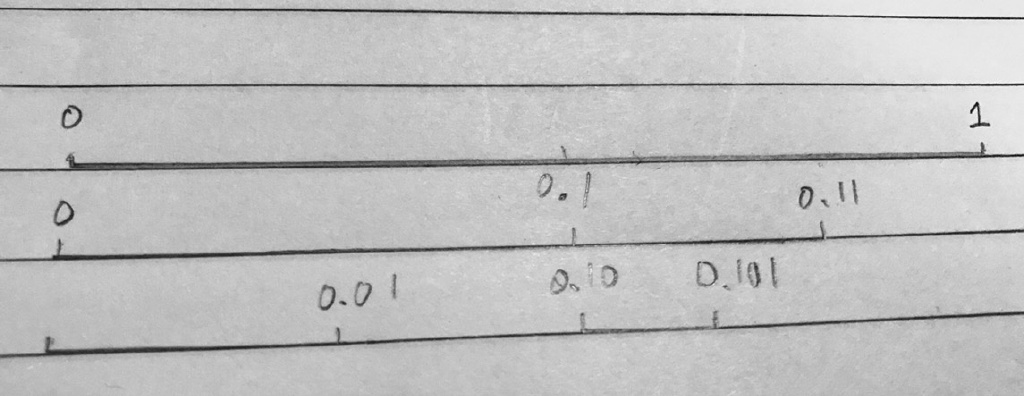 0 1
0 0.1 0.11
0.01 0.10 0.101